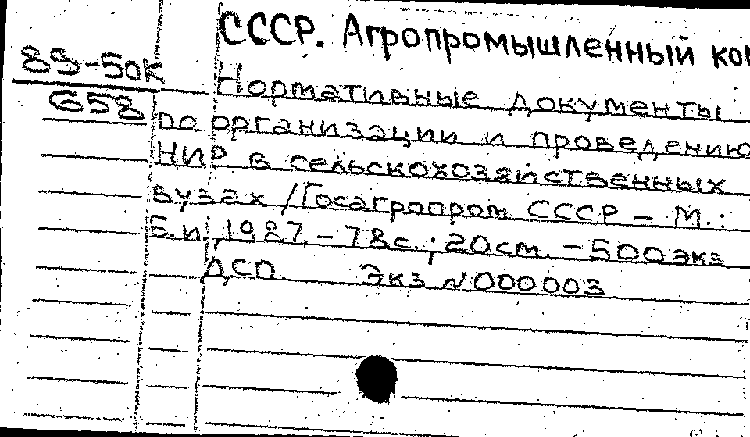 СССР. Агропромышленный ко
89-50К
658
Нормативные документы
по организации и проведению
НИР в сельскохозяйственных
вузах / Госагропром СССР – М.:
Б.и., 1987. – 78с.; 20см. – 500экз
ДСП. Экз №000003